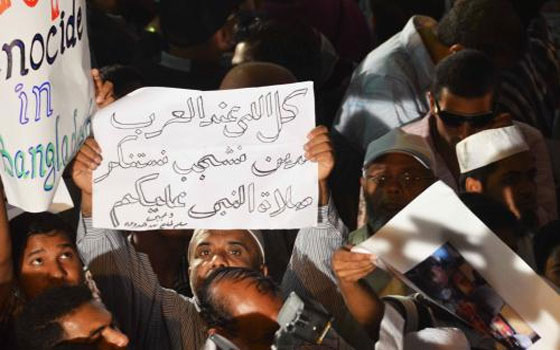 Stop
Genocide
in
Bangladesh
كل اللي عند العرب
ندين نشجب نستنكر
صلاة النبي عليكم